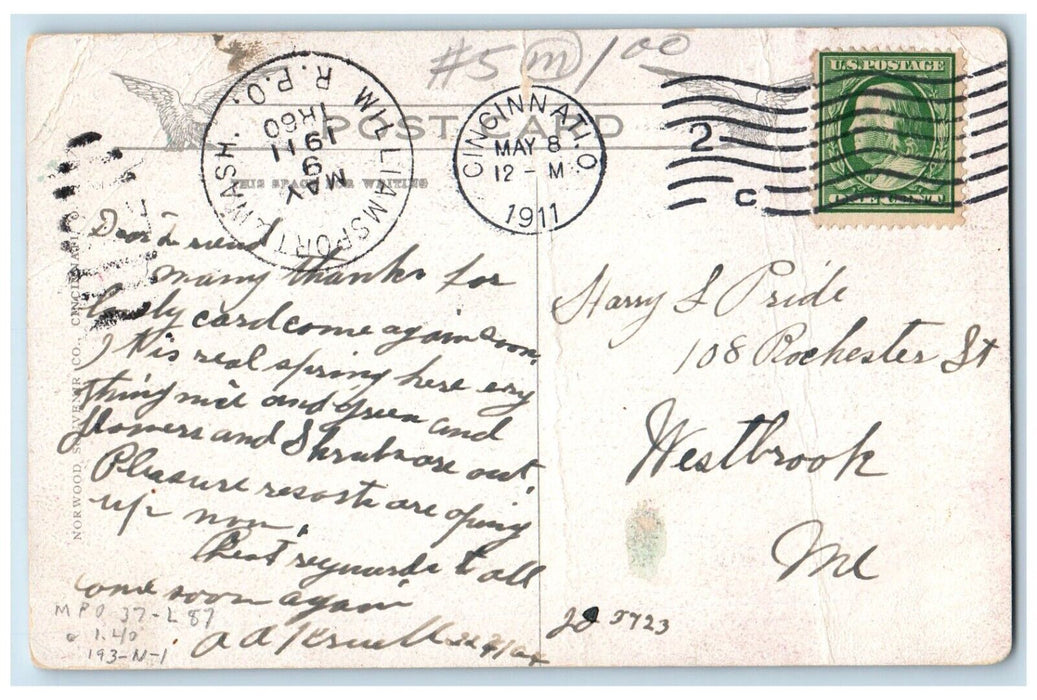 #5 m 1 00
U.S. POSTAGE
POST CARD
CINCINNATI, O.
MAY 8
12 - M
1911
2
C
WILLIAMSPORT & WASH.
MAY
9
1911
TR60
R.P.O.
THIS SPACE FOR WRITING
NORWOOD SOUVENIR CO., CINCINNATI
Dear Friend
many thanks for
lovely card come again soon,
this real spring here evy
thing nice and green and
flowers and Shrubs are out.
Pleasure resorts are opning
up now,
Best regards to all
come soon again
A A
Harry L Pride
108 Rochester St
Westbrook
Me
5723
MPO 37-L 87
1.40
193-N-1